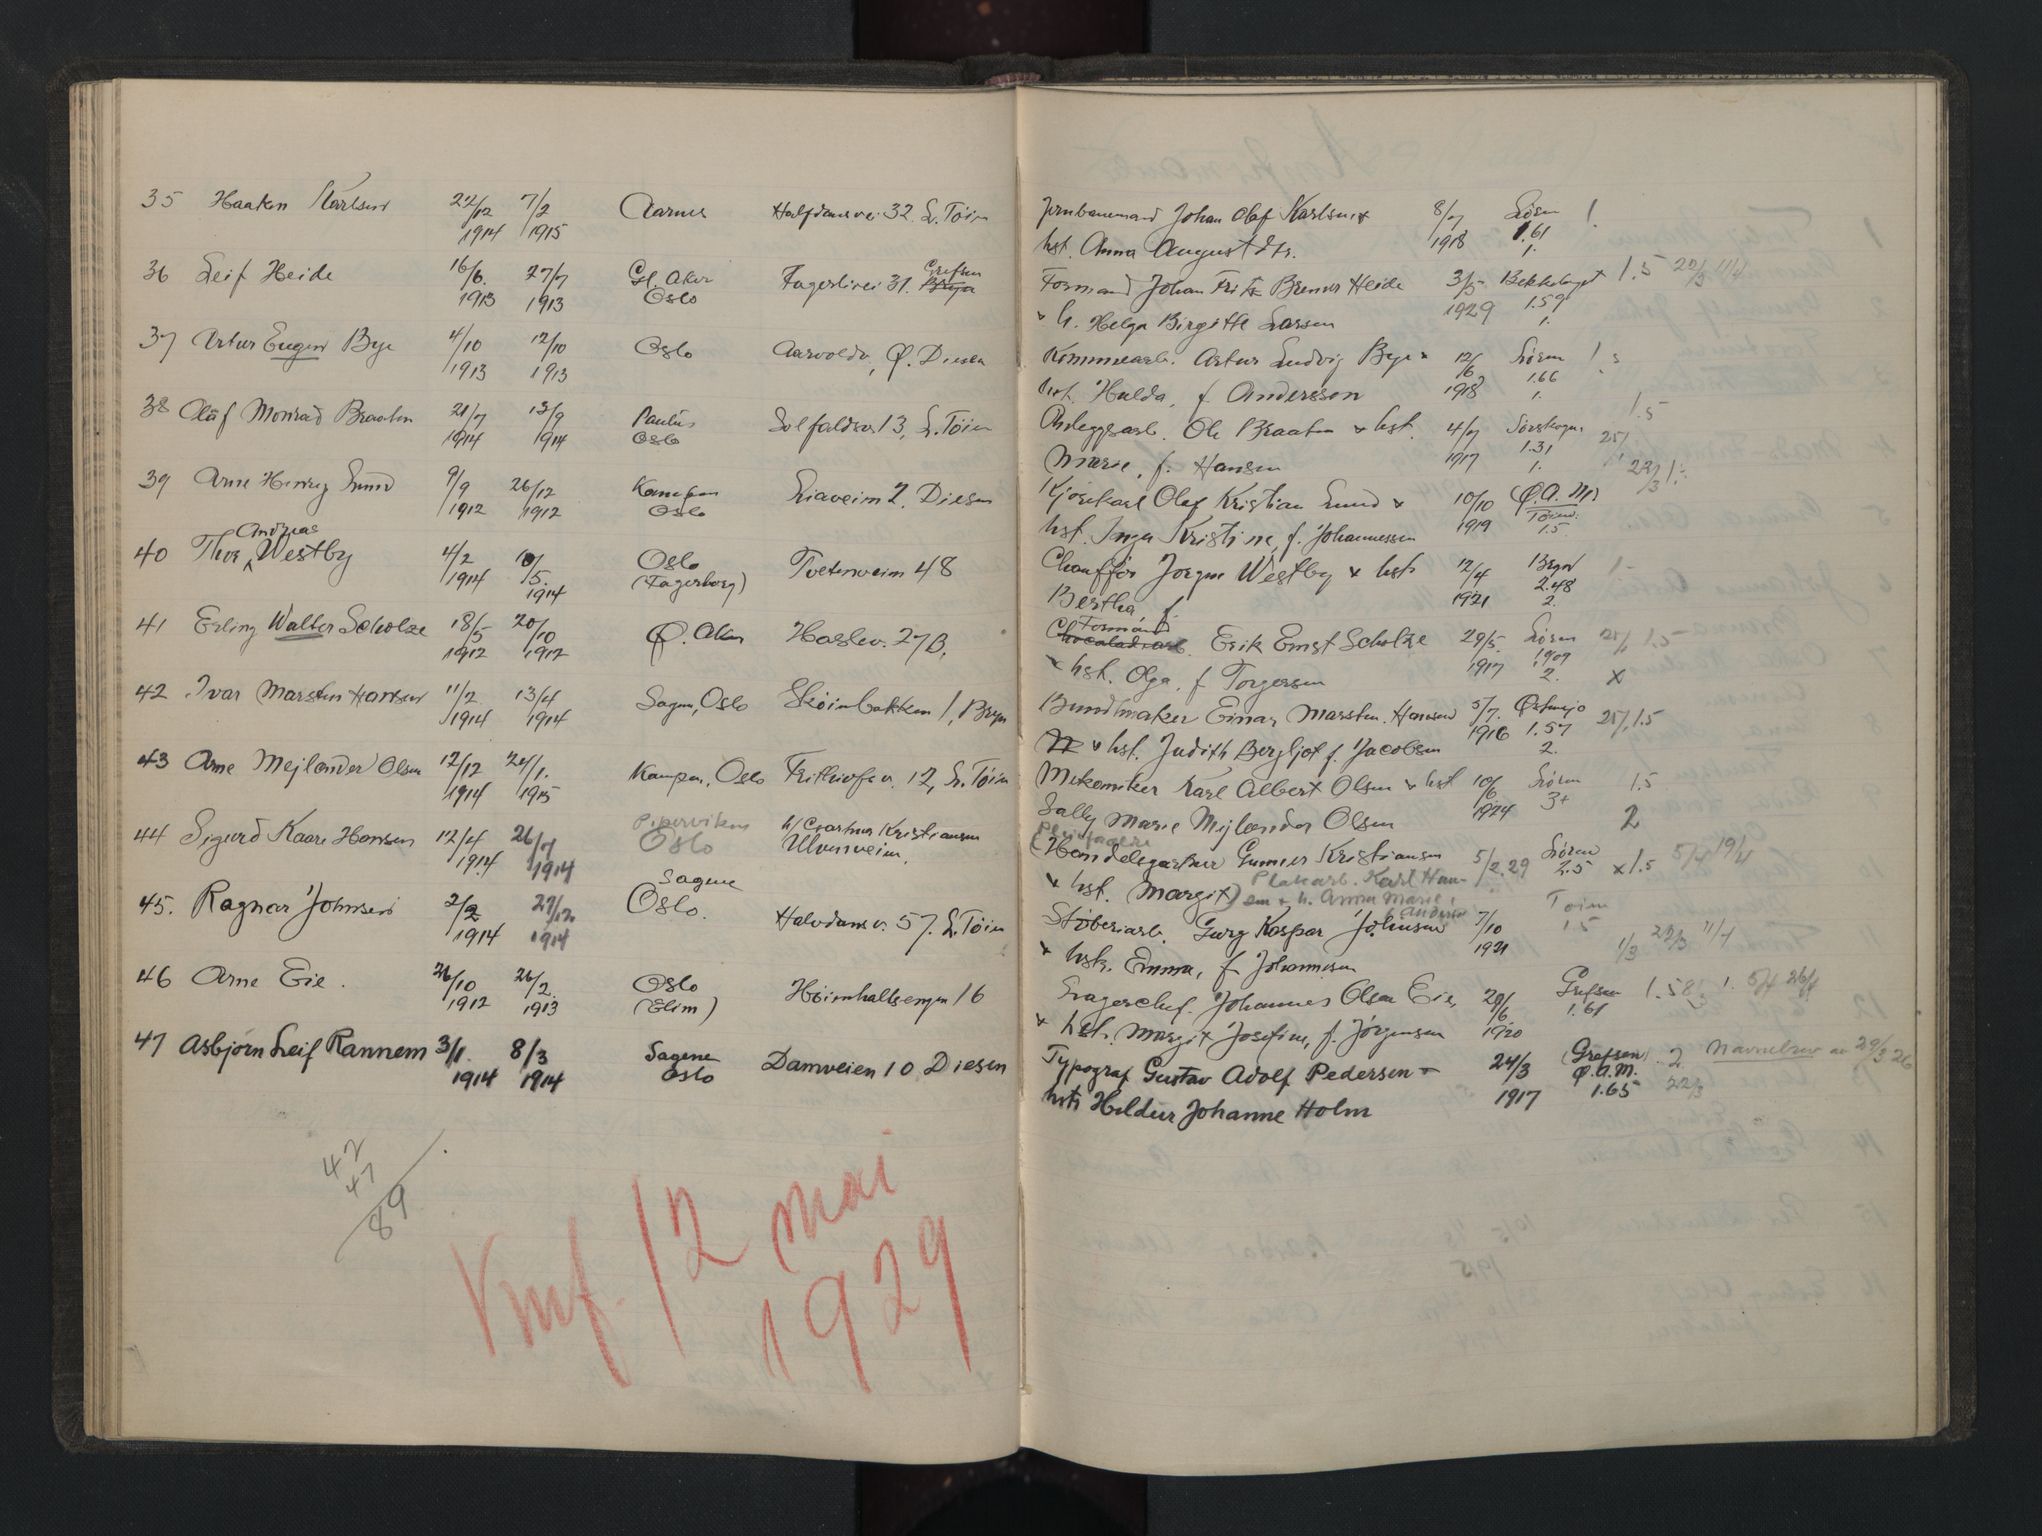 35 Haaken Karlsen 22/12 1914 7/2 1915 Aarnes Halfdansvei 32. L. Tøien
36 Leif Heide 16/6. 1913 27/7 1913 Gl. Aker Oslo Fagerlivei 31. Grefsen
37 Artur Eugen Bye 4/10 1913 12/10 1913 Oslo Aarvoldv, Ø. Diesen
38 Olaf Monrad Braaten 21/7 1914 13/9 1914 Paulus Oslo Solfaldsv. 13, L. Tøien
39 Arne Henry Lund 9/9 1912 26/12 1912 Kampen Oslo Liaveien 2. Diesen
40 Thor Andreas Westby 4/2 1914 10/5. 1914 Oslo (Fagerborg) Tvetenveien 48
41 Erling Walter Scholze 18/5 1912 20/10 1912 Ø. Aker Haslev. 27B.
42 Ivar Marsten Hansen 11/2 1914 13/4 1914 Sagen, Oslo Skøienbakken 1, Bryn
43 Arne Mejlænder Olsen 12/12 1914 24/1. 1915 Kampen, Oslo Frithiofsv. 12, L. Tøien
44 Sigurd Kaare Hansen 12/4 1914 26/7 1914 Pipervikens Oslo Kristiansen Ulvenveien.
45. Ragnar Johnsen 2/2 1914 27/12 1914 Sagene Oslo. Halvdansv. 57. L. Tøien
46 Arne Eie. 26/10 1912 26/2. 1913 Oslo (Elim) Høienhallsengen 16
47 Asbjørn Leif Rannem 3/1. 1914 8/3 1914 Sagene Oslo Damveien 10 Diesen
42
47
89
Kmf. 12 mai
1929
Jernbanemand Johan Olaf Karlsen + 8/7 1918 Løren 1.61 1. !
hst. Anna Augustdtr.
Formand Johan Fritz Bremer Heide 3/5 1929 Bekkelaget 1.59 1. 1.5 22/3 11/4
+ h. Helga Birgitte Larsen
Kommunearb. Artur Ludvig Bye + 12/6 1918 Løren 1.66 1.
hst. Hulda, f. Andersson
Anleggsarb. Ole Braaten + hst. 4/7 1917 1.31 1. 1.5
Marie, f. Hansen
Kjørekarl Olaf Kristian Lund + 10/10 1919 (Ø.A.M) Tøien: 1.5 22/3
hst. Inga Kristine, f. Johannessen
Chauffør Jørgen Westby + hst 12/4 1921 Bryn 2.48 2.
Bertha f
Formand Erik Ernst Scholze 29/5. 1917 Løren 1.5
+ hst. Olga, f Torgersen 2. x
Bundtmaker Einar Marsten Hansen 5/7. 1916 Østensjø 1.57 2. 1.5
+ hst. Judith Bergljot f. Jacobsen
Mekaniker Karl Albert Olsen + hst 10/6 1924 Løren 3+ 1.5
Sally Marie Mejlænder Olsen 2
Pleiefagere
(Handelsgartner Gunner Kristiansen 5/2.29 Løren 2.5 x 1.5 5/4 19/4
+ hst. Margit) Plakarb. Karl Hansen + h. Anna Marie f. Andersen
Støberiarb. Georg Kaspar Johnsen 7/10 1921 Toien 15 1/3 22/3 11/4
+ hst. Emma, f. Johannesen
Lagerchef. Johannes Olsen Eie, 29/6. 1920 Grefsen 1.61 1.58 1. 5/4 26/4
+ hst. Margit Josefine, f. Jørgensen
Typograf Gustav Adolf Pedersen + 24/3 1917 (Grefsen) Ø.A.M. 1.65 2. Navnebrev av 29/3 26
hst. Hildur Johanne Holm 22/3